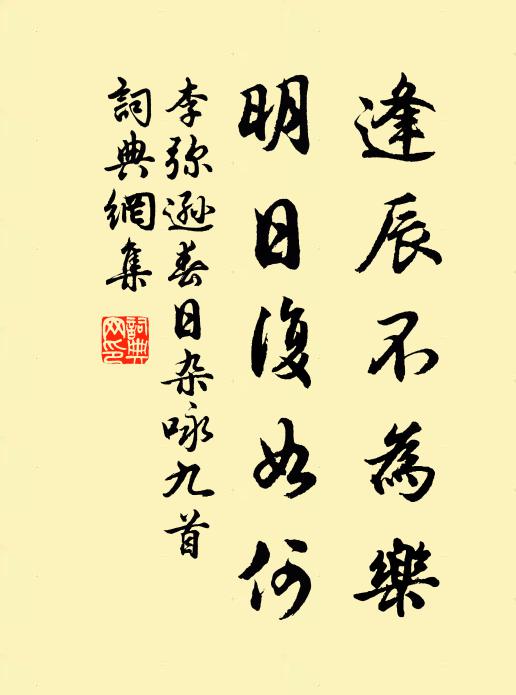 逢辰不為樂
明日復如何
李弥遜春日杂咏九首
詞典網集
詞典网印